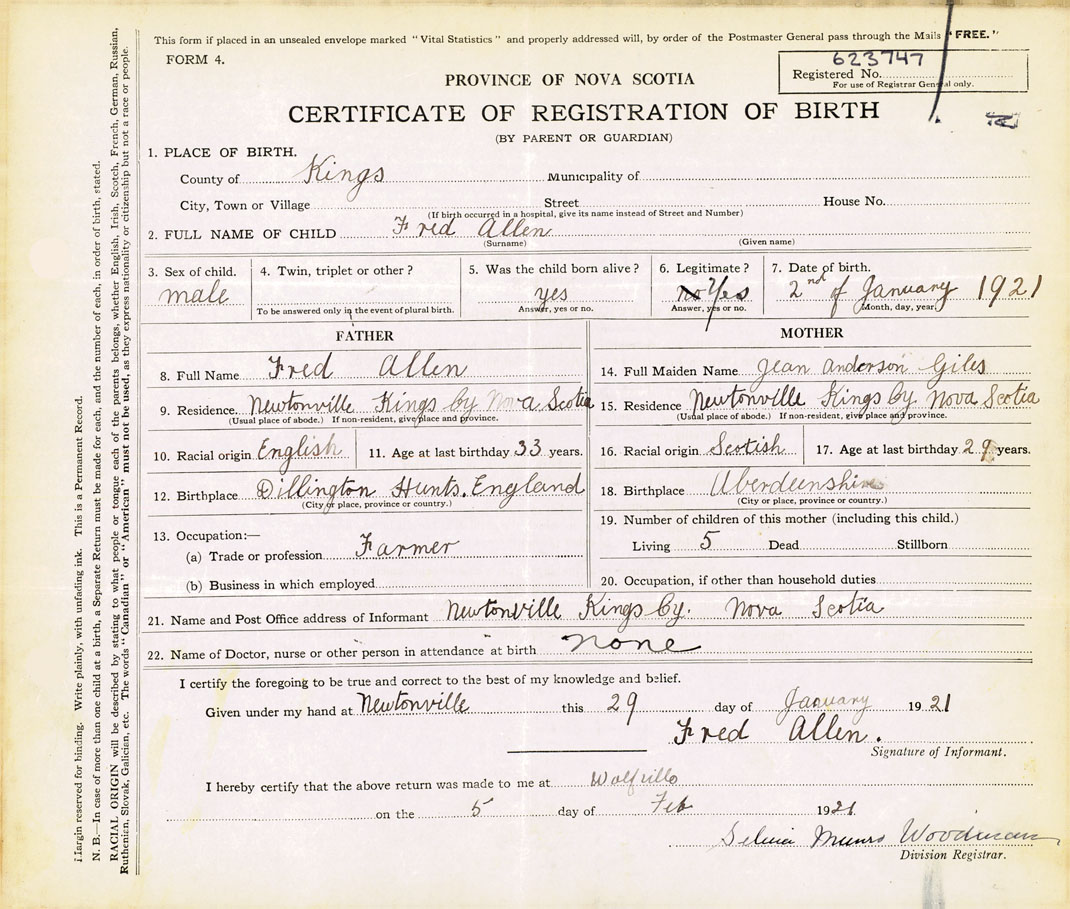 This form if placed in an unsealed envelope marked "Vital Statistics" and properly addressed will, by order of the Postmaster General pass through the Mails "FREE."
FORM 4.
623747
Registered No.
For use of Registrar General only.
PROVINCE OF NOVA SCOTIA
CERTIFICATE OF REGISTRATION OF BIRTH
(BY PARENT OR GUARDIAN)
1. PLACE OF BIRTH.
County of Kings Municipality of
City, Town or Village Street House No.
(If birth occurred in a hospital, give its name instead of Street and Number)
2. FULL NAME OF CHILD Fred Allen
(Surname) (Given name)
3. Sex of child. 4. Twin, triplet or other? 5. Was the child born alive? 6. Legitimate? 7. Date of birth.
male yes no Yes 2nd of January 1921
To be answered only in the event of plural birth. Answer, yes or no. Answer, yes or no. Month, day, year.
FATHER
8. Full Name Fred Allen
9. Residence. Newtonville Kings Cy Nova Scotia
(Usual place of abode.) If non-resident, give place and province.
10. Racial origin English 11. Age at last birthday 33 years.
12. Birthplace Dillington Hunts. England
(City or place, province or country.)
13. Occupation:—
(a) Trade or profession Farmer
(b) Business in which employed
MOTHER
14. Full Maiden Name Jean Anderson Giles
15. Residence Newtonville Kings Cy. Nova Scotia
(Usual place of abode.) If non-resident, give place and province.
16. Racial origin Scotish 17. Age at last birthday 29 years.
18. Birthplace Aberdeenshire
(City or place, province or country.)
19. Number of children of this mother (including this child.)
Living 5 Dead Stillborn
20. Occupation, if other than household duties
21. Name and Post Office address of Informant Newtonville Kings Cy. Nova Scotia
22. Name of Doctor, nurse or other person in attendance at birth none
I certify the foregoing to be true and correct to the best of my knowledge and belief.
Given under my hand at Newtonville this 29 day of January 1921
Fred Allen.
Signature of Informant.
I hereby certify that the above return was made to me at Wolfville
on the 5 day of Feb 1921
Munro Woodman
Division Registrar.
Margin reserved for binding. Write plainly, with unfading ink. This is a Permanent Record.
N. B.—In case of more than one child at a birth, a Separate Return must be made for each, and the number of each, in order of birth, stated.
RACIAL ORIGIN will be described by stating to what people or tongue each of the parents belongs, whether English, Irish, Scotch, French, German, Russian,
Ruthenian, Slovak, Galician, etc. The words "Canadian" or "American" must not be used, as they express nationality or citizenship but not a race or people.